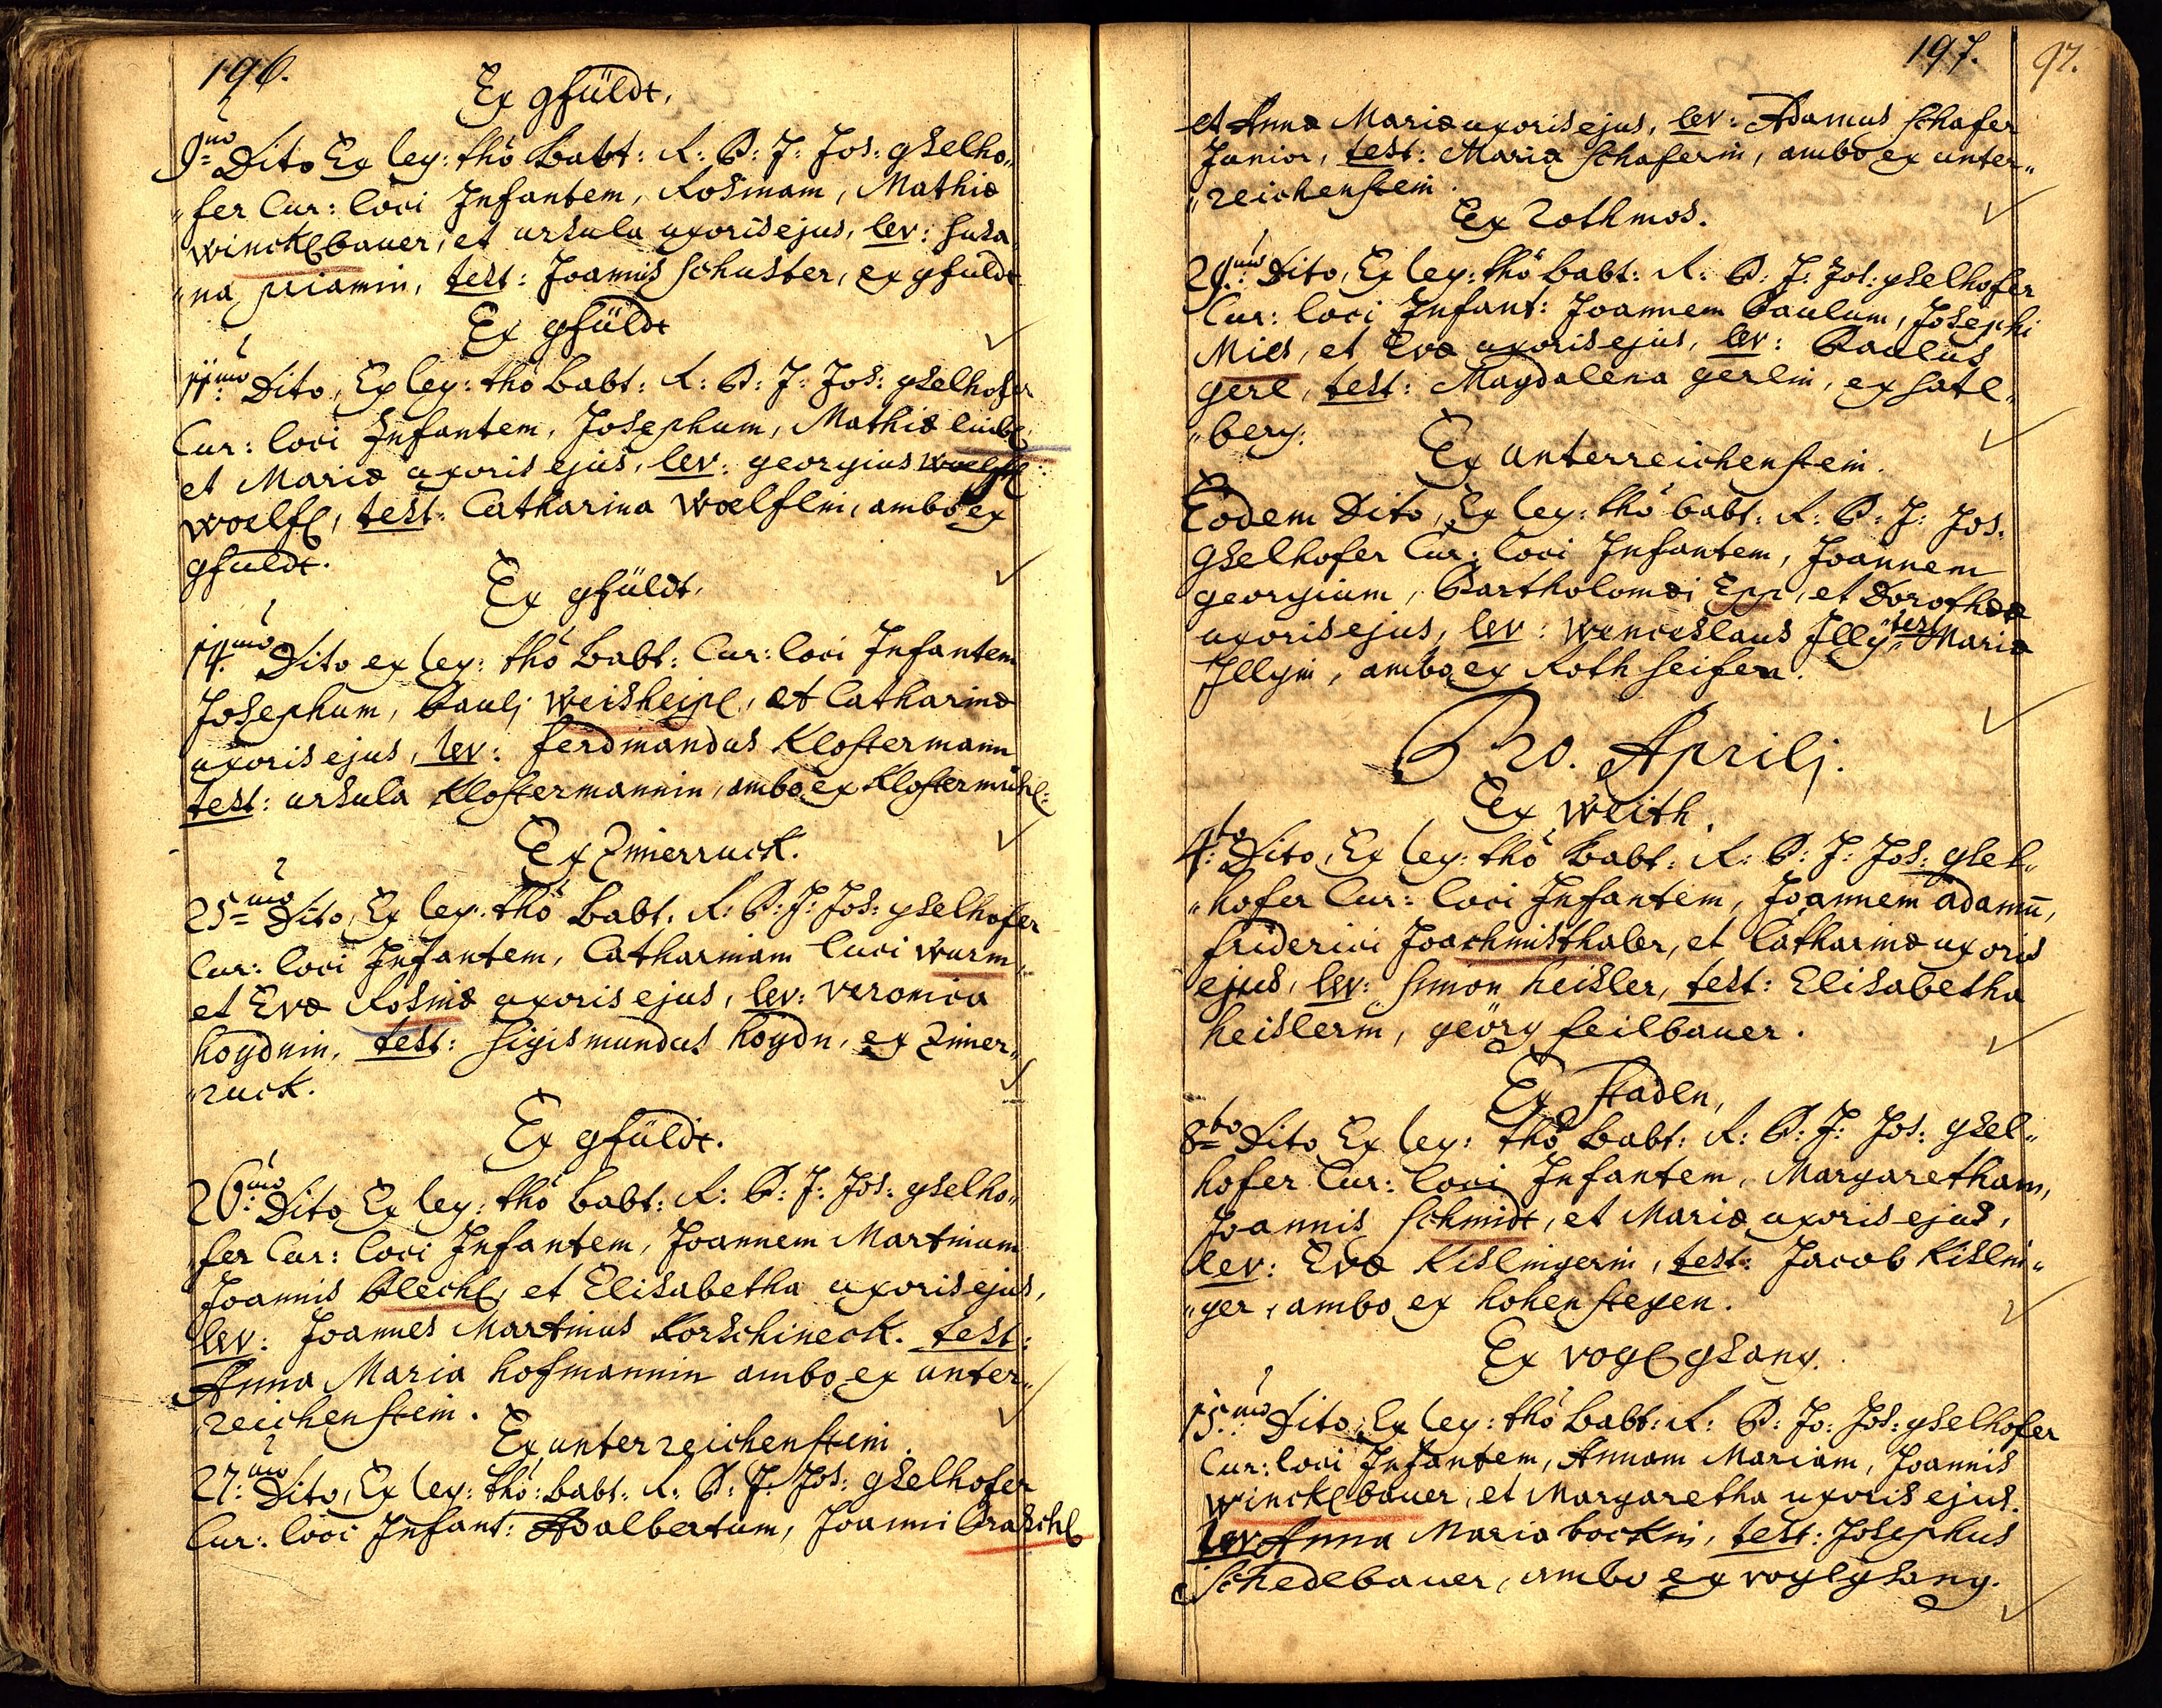 196.
Ex gfüldt.
9=no Dito Ex leg: thõ Babt: R: P: J: Jos: gselho„
„fer Cur: loci Infantem, Rosinam, Mathiæ
Wincklbauer, et ursula uxoris ejus, lev: susa„
„na, test: Joannis schuster, ex gfuldt
Ex gfüldt
11mo Dito, Ex leg: thõ Babt: R: P: J: Jos: gselhofer
Cur: loci Infantem, Josephum, Mathiæ
et Mariæ uxoris ejus, lev: georgius woelfl
woelfl, test: Catharina woelflin, ambo ex
gfuldt.
Ex gfüldt.
14.mo Dito ex leg: thõ Babt: Cur: loci Infantem
Josephum, Paulj Weisheipl, et Catharinæ
uxoris ejus, lev: ferdinandus Klostermann
test: ursula Klostermannin, ambo ex Klostermühl:
Ex Zimerruck.
25=mo Dito, Ex leg: thõ Babt: R: P: J: Jos: gselhofer
Cur: loci Infantem, Catharinam Luci Wurm
et Evæ Rosinæ uxoris ejus, lev: veronica
hoydnin, test: sigismundus hoydn, ex Zimer„
„ruck.
Ex gfüldt.
26.mo Dito Ex leg: thõ Babt: R: P: J: Jos: gselho„
fer Cur: loci Infantem, Joannem Martinum
Joannis Plechl, et Elisabetha uxoris ejus,
lev: Joannes Martinus Korschineck. test:
Anna Maria hofmannin ambo ex unter„
„reichenstein.
Ex unterreichenstein.
27.mo Dito, Ex leg: thõ: Babt: R: P: J: Jos: gselhofer
Cur: loci Infant: Adalbertum, Joanni Praschl
197.
97.
et Annæ Mariæ uxoris ejus, lev: Adamus schafer
Junior, test: Maria schaferin, ambo ex unter„
„reichenstein.
Ex rothmos.
29.mo Dito, Ex leg: thõ babt: R: P: J: Jos: gselhofer
Cur: loci Infant: Joannem Paulum, Josephi
Mies, et Evæ uxoris ejus, lev: Paulus
gerl, test: Magdalena gerlin, ex satl„
„berg.
Ex unterreichenstein.
Eodem Dito, Ex leg: thõ babt: R: P: J: Jos:
gselhofer Cur: loci Infantem, Joannem
georgium, Bartholomæi Epp, et Dorotheæ
uxoris ejus, lev: Wenceslaus Illy, test: Maria
Illyin, ambo ex Rothseifen.
Pro. Aprilj.
Ex weith.
4:to Dito, Ex leg: thõ Babt: R: P: J: Jos: gsel„
„hofer Cur: loci Infantem, Joannem adamū,
friderici Joachmisthaler, et Catharinæ uxoris
ejus, lev: simon heisler, test: Elisabetha
heislerin, geörg feilbauer.
Ex staden,
8=vo Dito Ex leg: thõ Babt: R: P: J: Jos: gsel„
hofer Cur: loci Infantem, Margaretham,
Joannis schmidt, et Mariæ uxoris ejus,
lev: Eva Kislingerin, test: Jacob Kislin„
„ger, ambo ex hohenstegen.
Ex voglgsang.
15.mo Dito, Ex leg: thõ Babt: R: P: Jo: Jos: gselhofer
Cur: loci Infantem, Annam Mariam, Joannis
Wincklbauer, et Margaretha uxoris ejus.
lev Anna Maria bockin, test: Josephus
schedlbauer, ambo ex voglgsang.